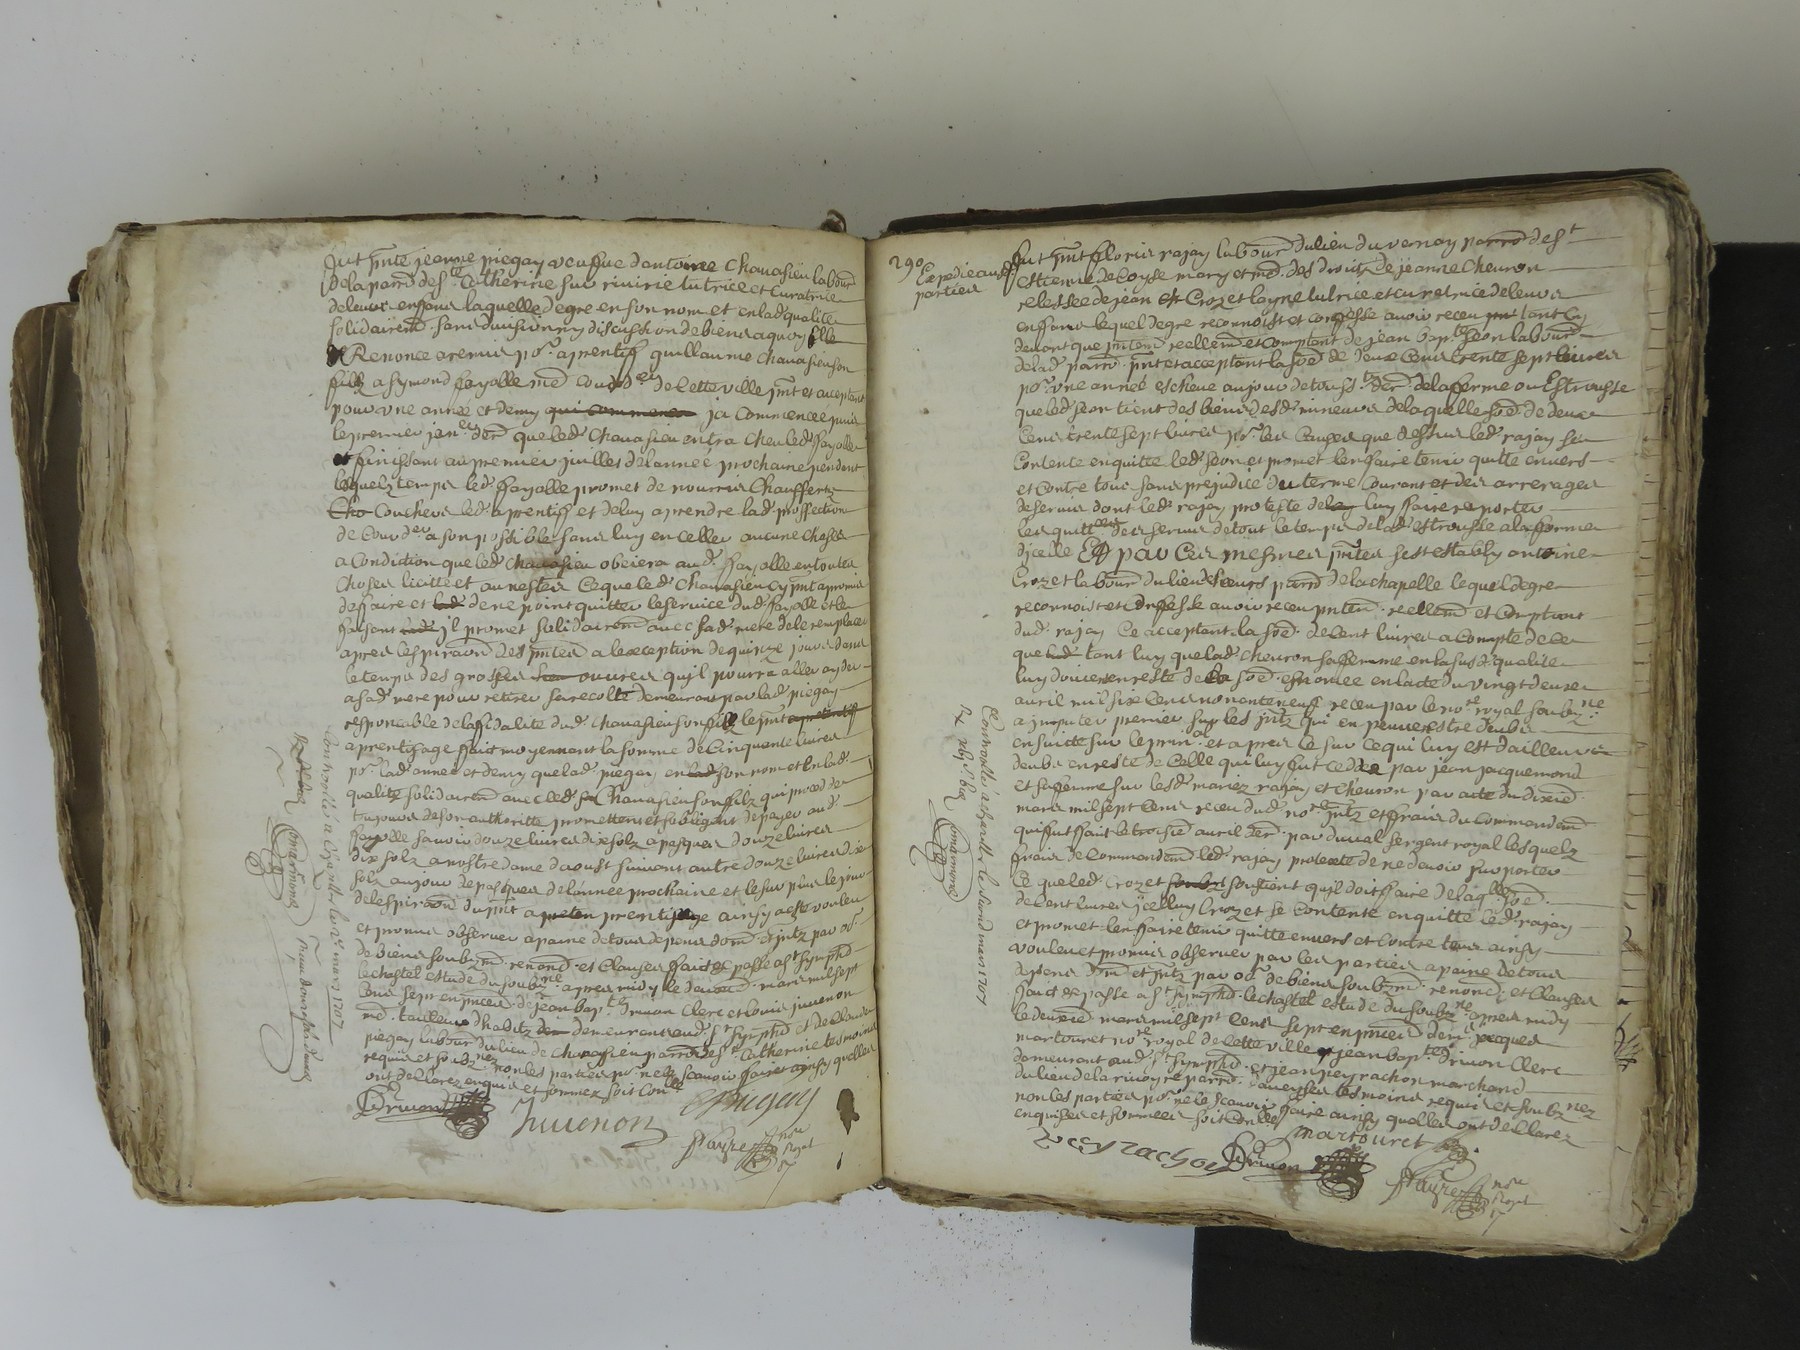 fut pnte jeanne piegay veuffve dantoine Chavasieu labour
de la parro des. te Catherine sur rivirie tutrice et curatrice
de leurs enffans laquelle degre en son nom et en lad qualite
solidairemt. sans division ny discussion de biens a quoy Elle
Renonce a remis pr. aprentiff guillaume chavasieu son
fillz a symond fayolle md Cordoer de cette ville pnt et acceptant
pour une année et demy qui commence ja commencee puis
le premier janer. der que led Chavasieu entra cheu led fayolle
et finissant au premier juillet de lannée prochaine pendent
lequelz temps led fayolle promet de nourrir Chauffer
Cho Coucher led aprentiff et de luy aprendre lad proffection
de Cordoer a son possible sans luy en celler aucune choses
a Condition que led Chavasieu obeiera aud. fayolle en toutes
choses licitte et aunestes Ce que led Chavasieu cy pnt a promis
de ffaire et de ne point quitter le service dud fayolle et le
faisant il promet solidairemt avec sad mere de le remplacer
apres lespiraon des pntes a lexception de quinze jours dans
le temps des grosses ouvres quil pourra aller ayder
a sad mere pour retirer sa recolte demeurant par lad piegay
responsable de la ffidalite dud chavasieu son fillz le pnt
aprentisage ffait moyennant la somme de Cinquante livres
pr. lad année et demy que lad piegay en son nom et en lad
qualite solidairemt avec led Chavasieu son ffilz qui proced de
tujours de son authoritte promettent et sobligent de payer aud
fayolle scavoir douze livres dix solz a pasques douze livres
dix solz a nostre dame daoust suivant autre douze livres dix
solz au jour de pasques de lannée prochaine et le sur plus le jour
de lespiraon du pnt aprentisage ainsy a este voulu
et promis observer a paine de tous depens dom. et jntz par ob.
de biens soubzm. renond. et Clauses fait et passe a st symphd
le chastel estude du soubzne apres midy le deuxe mars mil sept
Cens sept en pnces de jean bapte. drivon clerc et louis juvenon
md. tailleur dhabitz demeurant aud. st symphd et de Claude
piegay labour du lieu de chavasieu parro des te Catherine tesmoins
requis et soubznez non les parties pr ne le scavoir faire ainsy quelles
ont declarez enquis et sommez soit conlle
Drivon Juvenon C Piegay
notre Royal
Controolle a Chazelles le mars 1707
290
Expedie aux
parties
fut pnt ffloris rajay labour du lieu du vernay parro de st
estienne de Coyse mary et me. des droitz de jeanne cheuron
relessee de jean Crozet layne tutrice et curatrice de leurs
enffans lequel degre reconnoist et confesse avoir receu tant cy
devant que pntemt reellemt et comptant de jean bapte. seon labour
de lad parro. pnt et acceptant la soe de deux Cens trente sept livres
pr. une année escheue au jour de touss. ts der. de la fferme ou Estrousse
que led seon tient des biens desd mineurs de laquelle soe de deux
Cens trente sept livres pr. les causes que dessus led. rajay se
Contente en quitte led seon et promet len faire tenir quitte envers
et contre tous sans prejudice du terme courant et des arrerages
de servis dont led rajay proteste de luy ffaire reporter
les quittces des servis de tout le temps de lad estrousse a la fforme
dicelle Et par ces mesmes pntes sest estably antoine
Crozet labour du lieu parro de la chapelle lequel degre
reconnoist et confesse avoir receu pntemt. reellemt et comptant
dud. rajay Ce acceptant la soe. de cent livres a compte de ce
que tant luy que lad. cheuron sa ffemme en la susd. qualite
luy doivent en reste de la soe. esnoncee en lacte du vingt deuxe
avril mil six Cens nonante neuff receu par le nore royal soubzne
a jmputer premier sur les jntz qui en peuvent estre deubs
en suitte sur le prinal. et apres le sur ce qui luy est dailleurs
deubs en reste de Celle qui luy fut cedee par jean jacquemond
et sa ffemme sur lesd mariez rajay et cheuron par acte du dixie
mars mil sept cens receu dud. nore jntz et ffrais du commendemt
qui fut fait le troisie avril der. par duval sergent royal lesquelz
ffrais de Commandemt led rajay proteste de ne devoir supporter
Ce que led. Crozet soutient quil doit ffaire de laqlle. soe.
de Cent livres jcelluy Crozet se contente en quitte led. rajay
et promet len ffaire tenir quitte envers et contre tous ainsy
voulu et promis observer par les parties a paine de tous
depens dom et jntz par ob. de biens soubzm. renond. et Clauses
fait et passe a st symphd. le chastel estude du soubzne apres midy
le deuxie mars mil sept Cens sept en pnces de me jacques
martouret nore royal de cette ville et jean bapte drivon Clerc
demeurant aud. st symphd. et jean peyrachon marchand
du lieu de la rivoyre parro. daveysses tesmoins requis et soubznez
non les parties pr. ne le scavoir faire ainsy quelles ont declarez
enquises et sommees soit Conlle
Peyrachon Drivon Martouret
notre Royal
Controolle a chazelles le second mars 1707